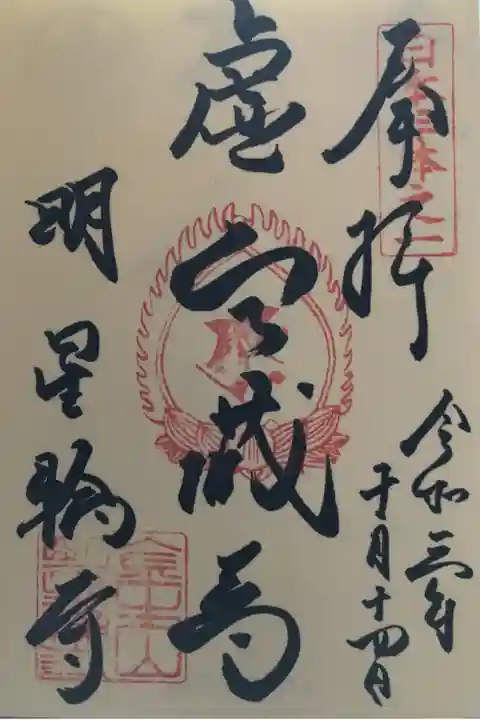 日本三体之一
奉拝
令和三年
十月十四日
虚空蔵尊
明星輪寺
金生山